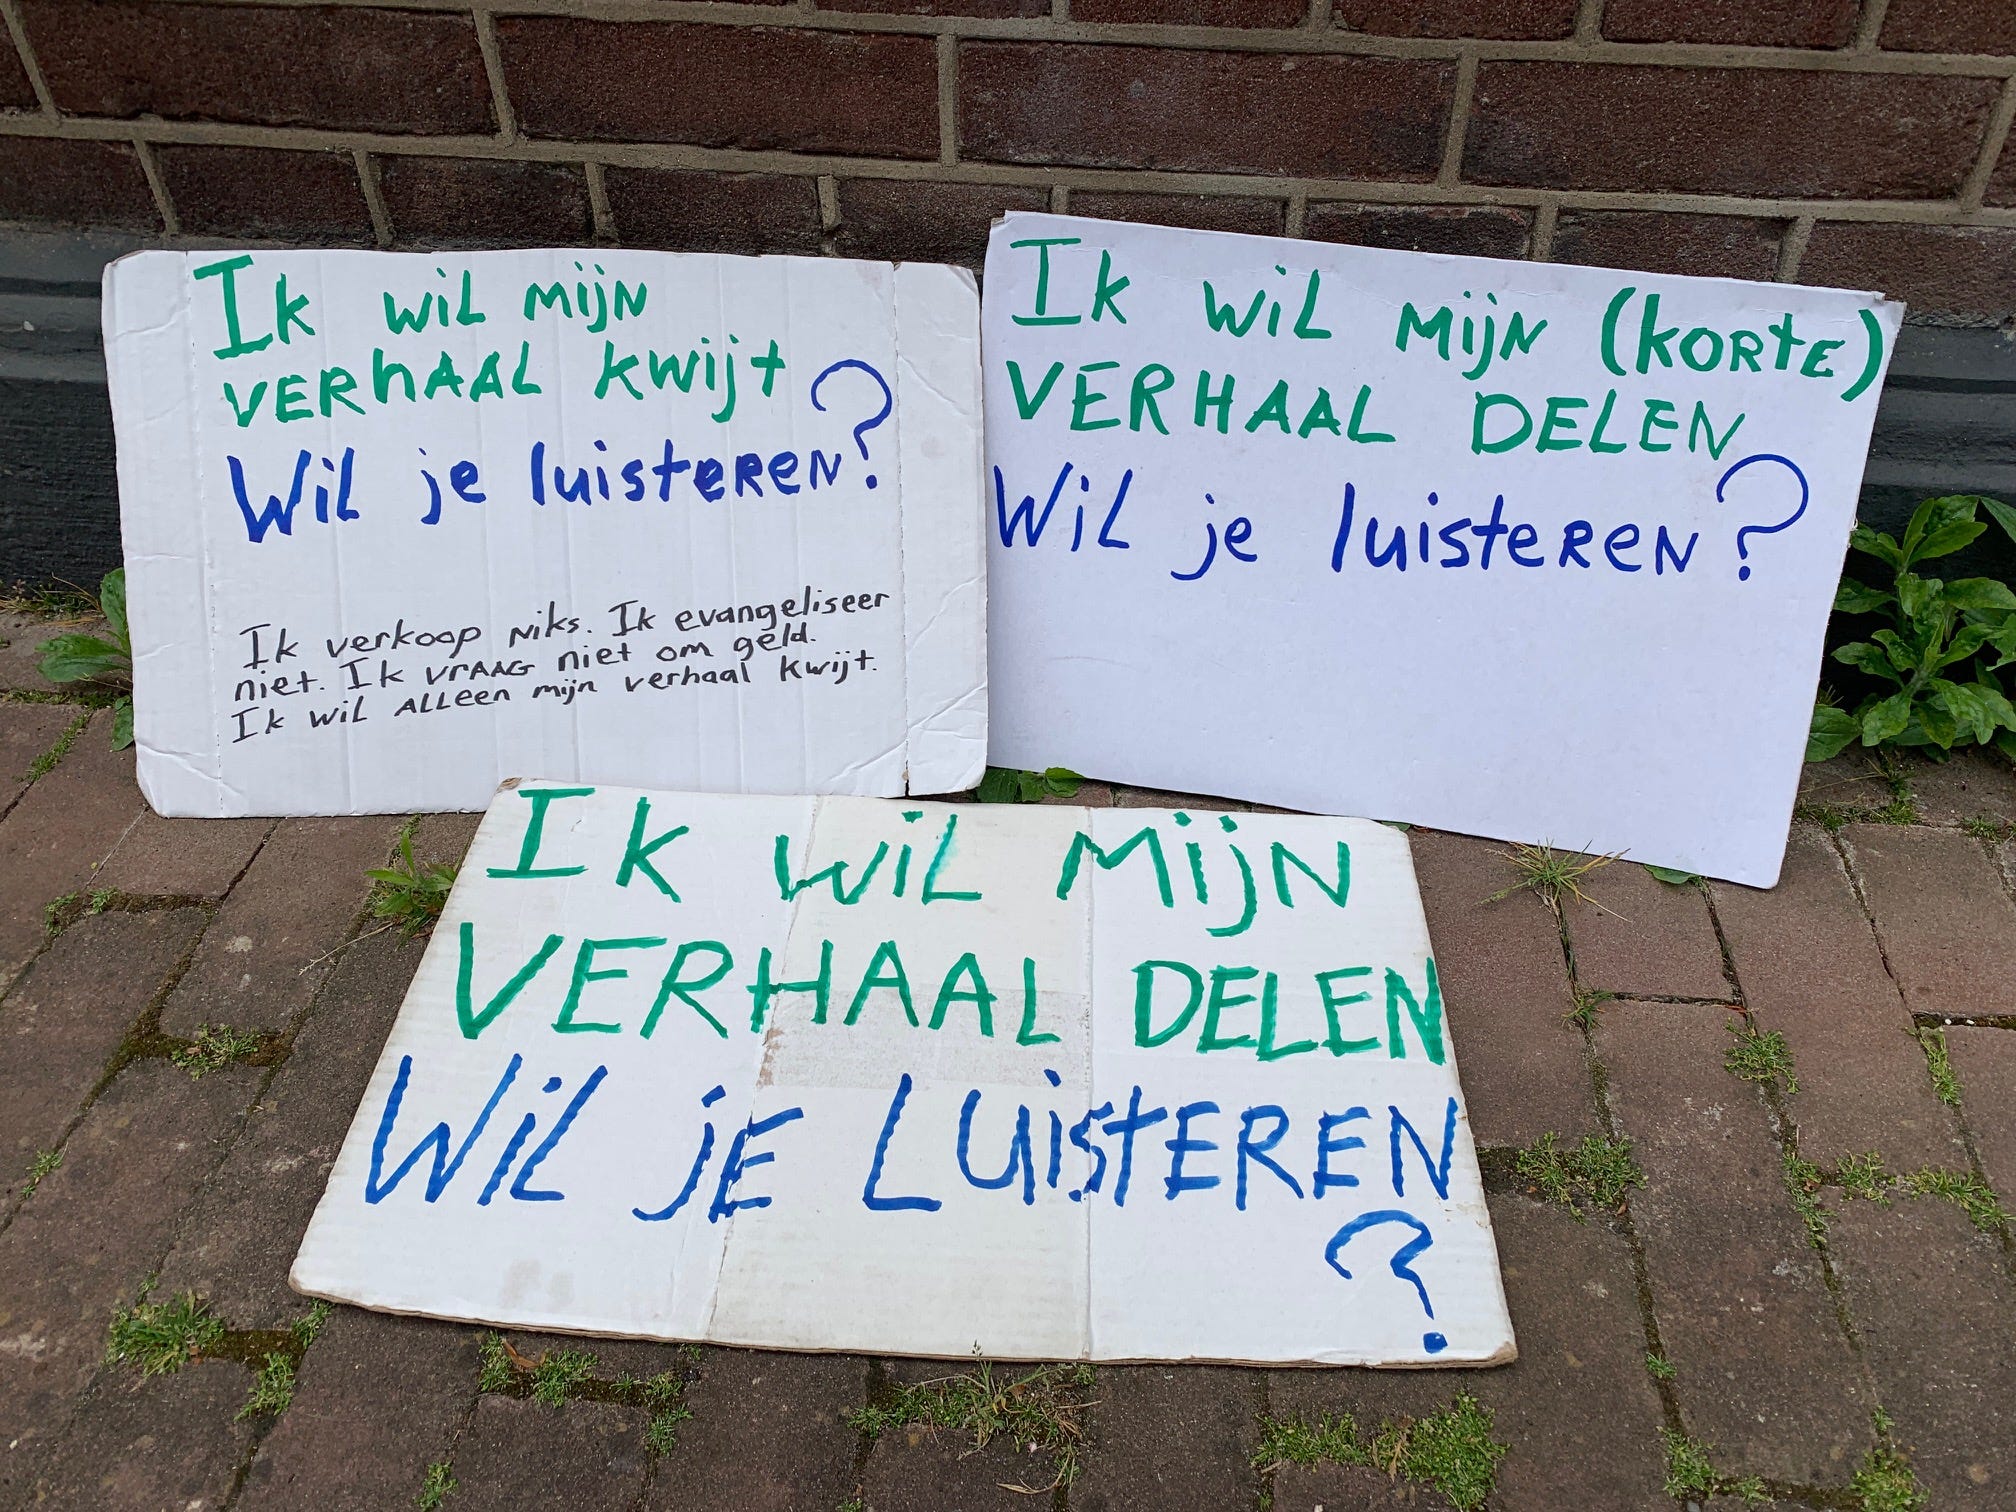 Ik wil mijn
verhaal kwijt
Wil je luisteren?
Ik verkoop niks. Ik evangeliseer
niet. Ik vraag niet om geld.
Ik wil alleen mijn verhaal kwijt.
Ik wil mijn (korte)
VERHAAL DELEN
Wil je luisteren?
Ik wil mijn
VERHAAL DELEN
Wil je LUISTEREN
?